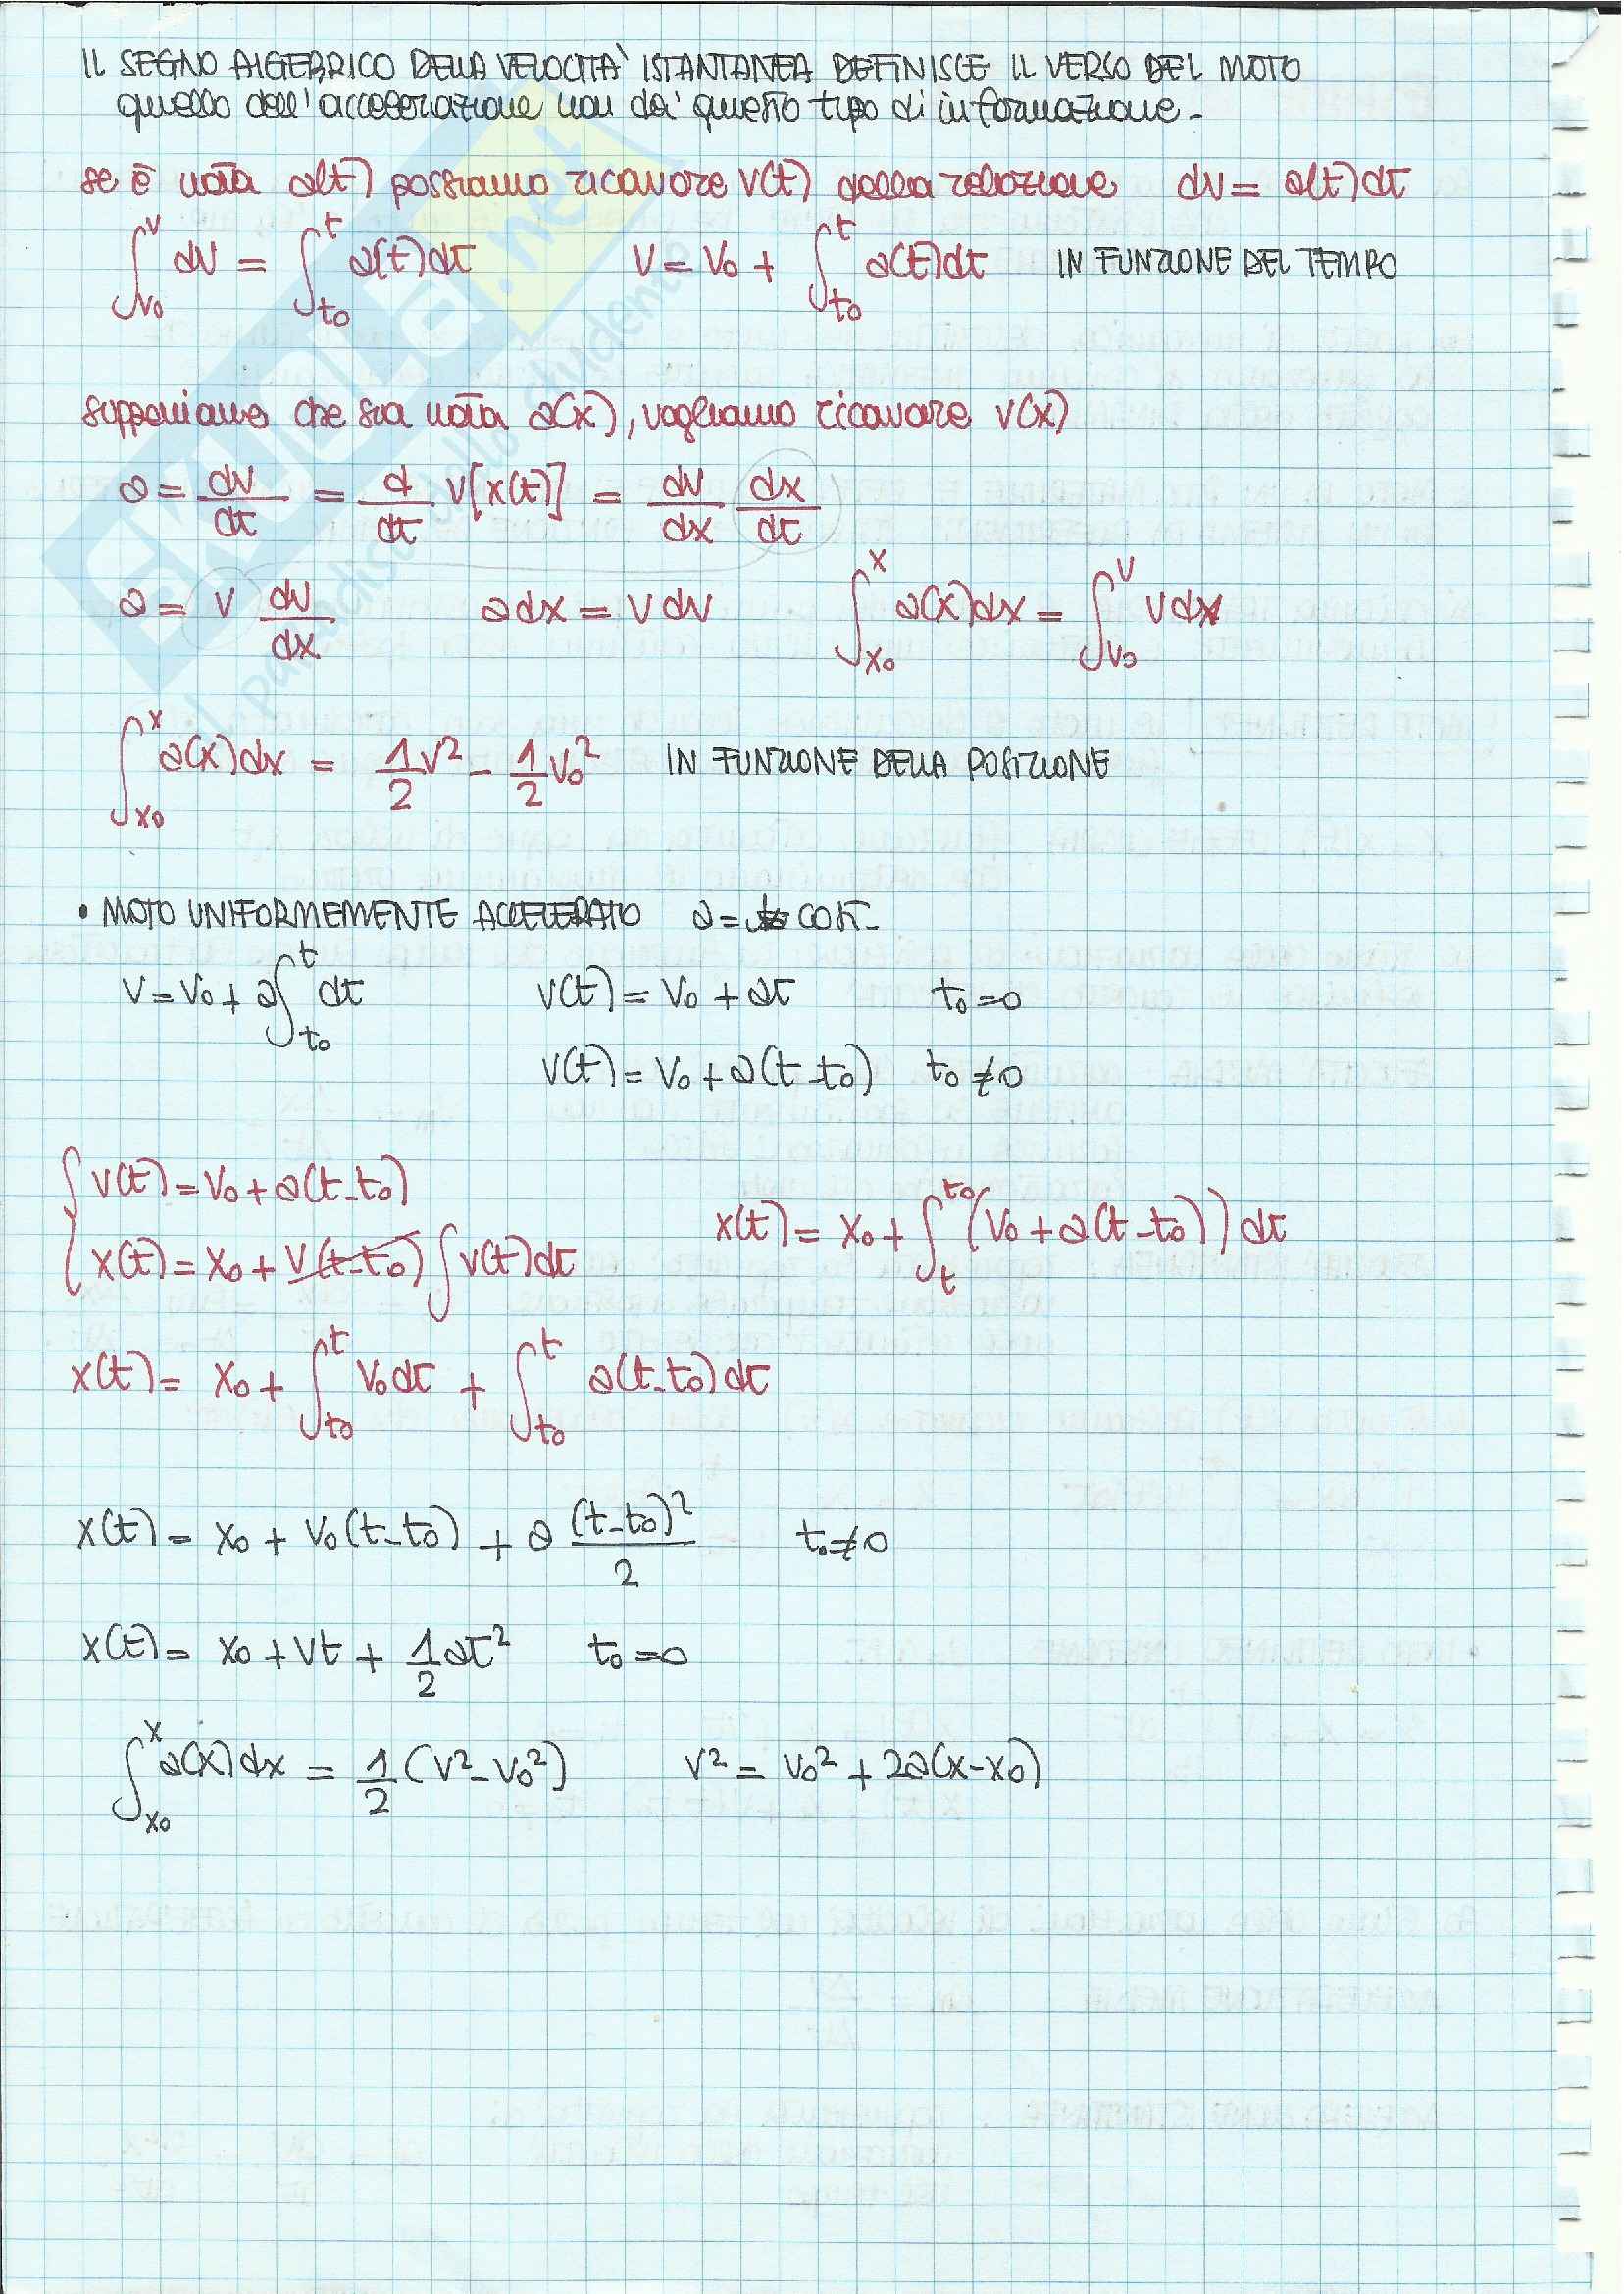 IL SEGNO ALGEBRICO DELLA VELOCITA' ISTANTANEA DEFINISCE IL VERSO DEL MOTO
quello dell'accelerazione non da' questo tipo di informazione.
se è nota a(t) possiamo ricavare v(t) dalla relazione dv = a(t)dt
∫_{v0}^{v} dv = ∫_{t0}^{t} a(t)dt    v = v0 + ∫_{t0}^{t} a(t)dt    IN FUNZIONE DEL TEMPO
supponiamo che sia nota a(x), vogliamo ricavare v(x)
a = dv/dt = d/dt v[x(t)] = dv/dx dx/dt
a = v dv/dx    adx = vdv    ∫_{x0}^{x} a(x)dx = ∫_{v0}^{v} vdv
∫_{x0}^{x} a(x)dx = 1/2 v² - 1/2 v0²    IN FUNZIONE DELLA POSIZIONE
• MOTO UNIFORMEMENTE ACCELERATO    a = cost.
v = v0 + a∫_{t0}^{t} dt    v(t) = v0 + at    t0 = 0
v(t) = v0 + a(t-t0)    t0 ≠ 0
{ v(t) = v0 + a(t-t0)
x(t) = x0 + v(t-t0) ∫v(t)dt    x(t) = x0 + ∫_{t}^{t0} (v0 + a(t-t0))dt
x(t) = x0 + ∫_{t0}^{t} v0dt + ∫_{t0}^{t} a(t-t0)dt
x(t) = x0 + v0(t-t0) + a (t-t0)²/2    t0 ≠ 0
x(t) = x0 + vt + 1/2 at²    t0 = 0
∫_{x0}^{x} a(x)dx = 1/2 (v² - v0²)    v² = v0² + 2a(x-x0)
SKUOLA.net
il paradiso dello studente